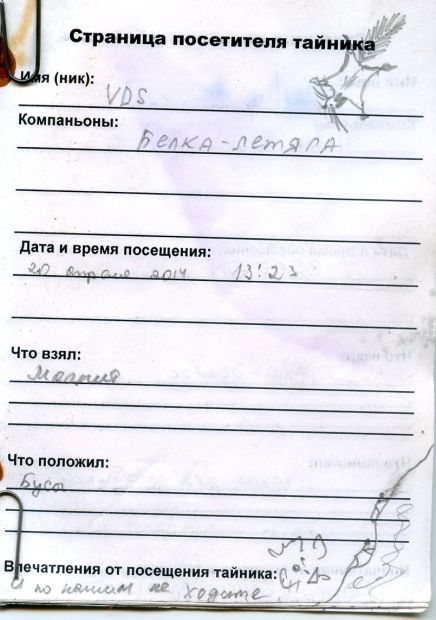 Страница посетителя тайника
Имя (ник):
VDS
Компаньоны:
БЕЛКА-ЛЕТЯГА
Дата и время посещения:
20 апреля 2014 13:23
Что взял:
Магнит
Что положил:
Бусы
Впечатления от посещения тайника:
и по нашим не ходите